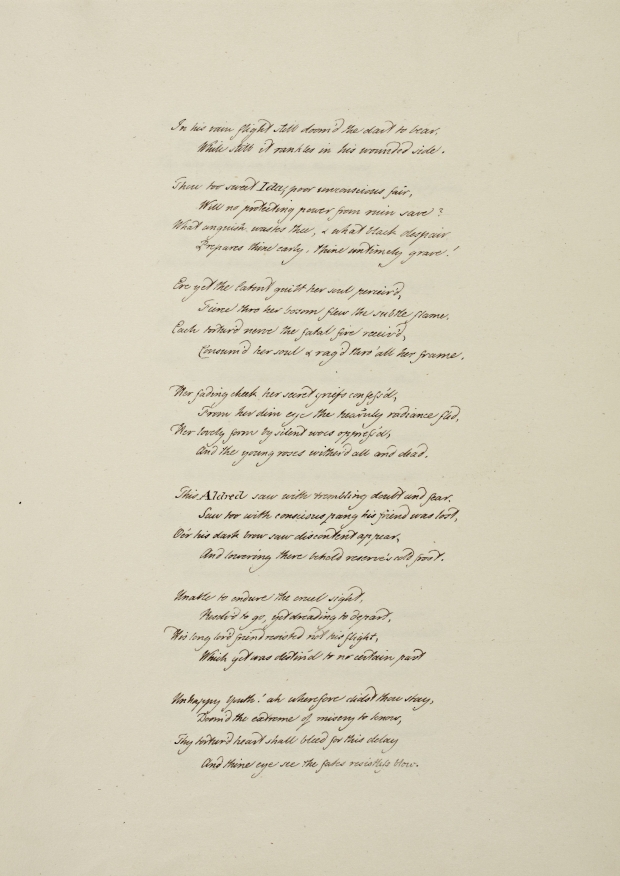 In his vain flight still doom'd the dart to bear,
While still it rankles in his wounded side.
Thou too sweet Ida, poor unconscious fair,
Will no protecting power from ruin save?
What anguish wastes thee, & what black despair
Prepares thine early, thine untimely grave!
Ere yet the latent guilt her soul perceiv'd,
Fierce thro her bosom flew the subtle flame,
Each tortur'd nerve the fatal fire receiv'd,
Consum'd her soul & rag'd thro' all her frame.
Her fading cheek her secret griefs confess'd,
From her dim eye the heav'nly radiance fled,
Her lovely form by silent woes oppress'd,
And the young roses wither'd all and dead.
This Aldred saw with trembling doubt and fear.
Saw too with conscious pang his friend was lost,
O'er his dark brow saw discontent appear,
And lowering there behold reserve's cold frost.
Unable to endure the cruel sight,
Resolv'd to go, yet dreading to depart,
His long lov'd friend resisted not his flight,
Which yet was destin'd to no certain part
Unhappy Youth! ah wherefore didst thou stay,
Doom'd the extreme of misery to know,
Thy tortur'd heart shall bleed for this delay
And thine eye see the fates resistless blow.